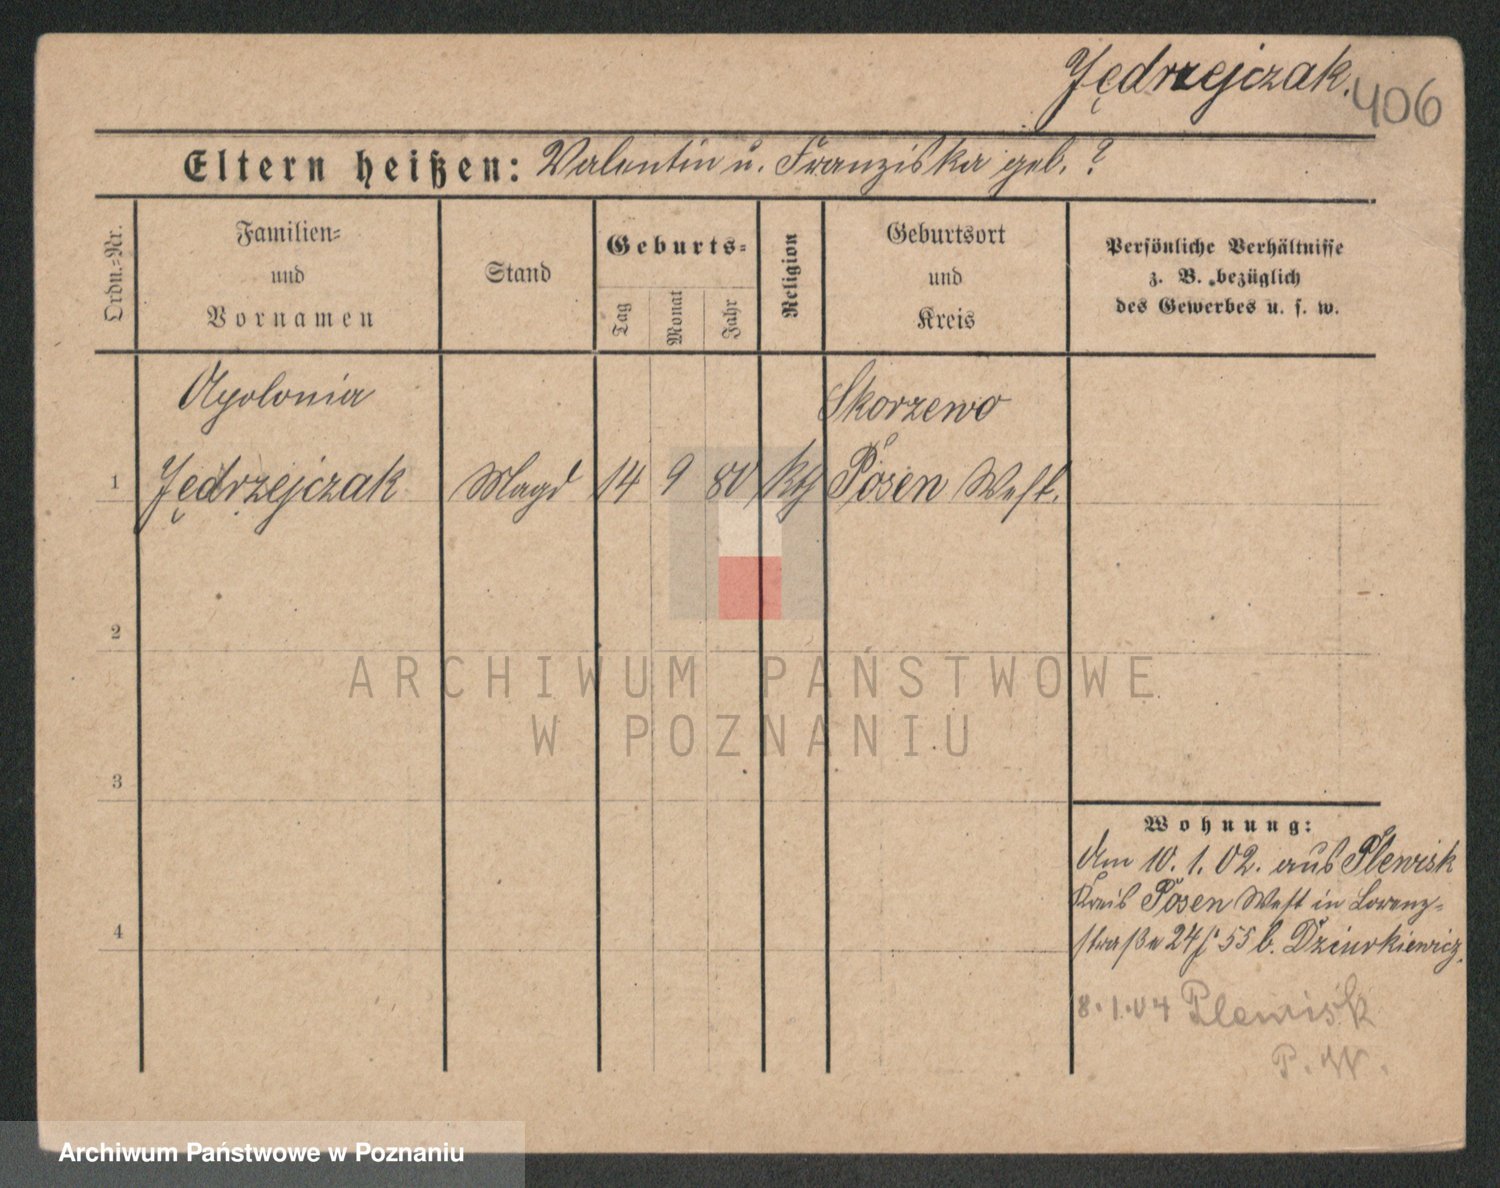 Jędrzejczak.
406
Eltern heißen: Valentin u. Franziska geb. ?
Ordn.-Nr.
Familien-
und
Vornamen
Stand
Geburts-
Tag
Monat
Jahr
Religion
Geburtsort
und
Kreis
Persönliche Verhältnisse
z. B. bezüglich
des Gewerbes u. s. w.
Apolonia
Skorzewo
1 Jędrzejczak Magd 14 9 80 kth Posen West.
2
ARCHIWUM PAŃSTWOWE
W POZNANIU
3
4
Wohnung:
Am 10. 1. 02. aus Plewisk
Kreis Posen West in Lorenz-
straße 24 55 b. Dziurkiewicz.
8.1.04 Plewisk
P. W.
Archiwum Państwowe w Poznaniu